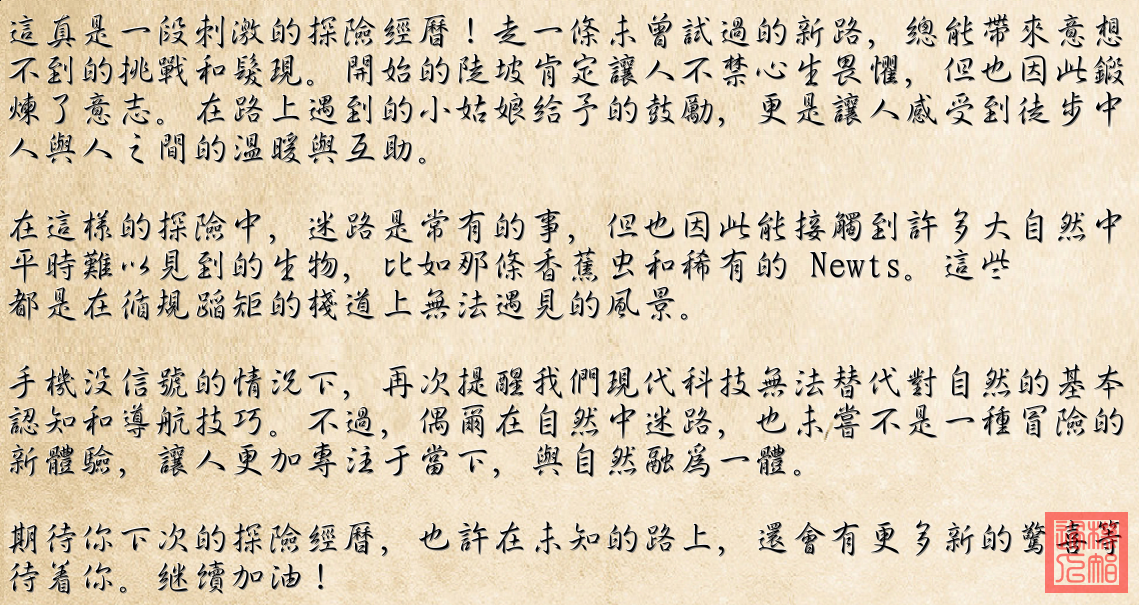 這真是一段刺激的探險經曆！走一條未曾試過的新路，總能帶來意想
不到的挑戰和髮現。開始的陡坡肯定讓人不禁心生畏懼，但也因此鍛
煉了意志。在路上遇到的小姑娘给予的鼓勵，更是讓人感受到徒步中
人與人之間的溫暖與互助。
在這樣的探險中，迷路是常有的事，但也因此能接觸到許多大自然中
平時難以見到的生物，比如那條香蕉虫和稀有的 Newts。這些
都是在循規蹈矩的棧道上無法遇見的風景。
手機没信號的情況下，再次提醒我們現代科技無法替代對自然的基本
認知和導航技巧。不過，偶爾在自然中迷路，也未嘗不是一種冒險的
新體驗，讓人更加專注于當下，與自然融爲一體。
期待你下次的探險經曆，也許在未知的路上，還會有更多新的驚喜等
待着你。继續加油！